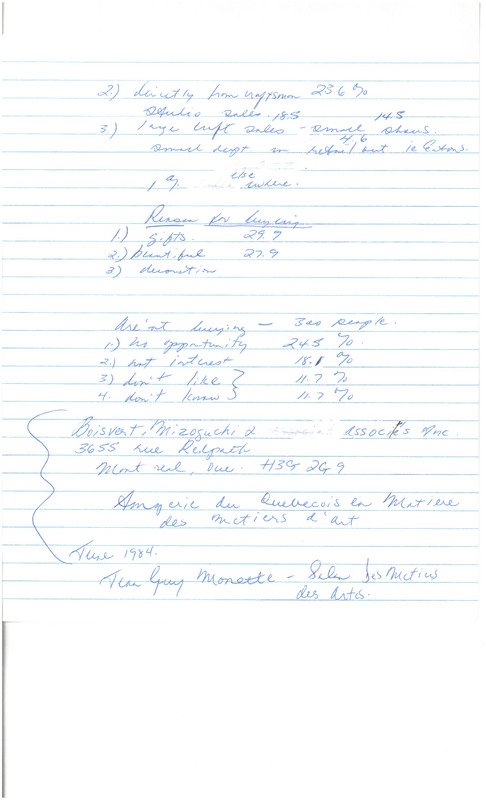 2.) directly from craftsman 23.6 %
studio sales. 18.5 14.5
3) large craft sales - small shows.
small dept in retail 4.6 but ie Eatons.
1 %. else where.
Reason for buying
1.) gifts. 29.7
2.) beautiful 27.9
3) decoration
Are'nt buying - 300 people.
1) no opportunity 24.5 %.
2.) not interest 18.1 %
3) don't like } 11.7 %
4. don't know } 11.7 %
Boisvert, Mizoguchi & associates Inc.
3655 rue Redpath
Montreal, Que. H3G 2G9
Quebecois en Matiere
des metiers d'art
June 1984.
Jean Guy Monette - Salon des Metiers
des Arts.